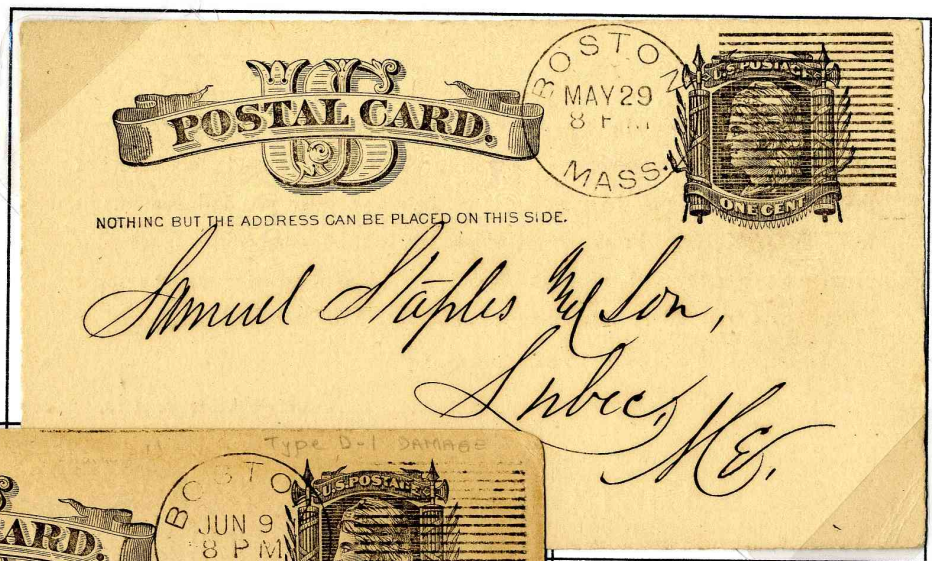 US
POSTAL CARD.
BOSTON
MAY 29
8 P M
MASS.
U.S. POSTAGE
ONE CENT
NOTHING BUT THE ADDRESS CAN BE PLACED ON THIS SIDE.
Samuel Staples & Son,
Lubec,
Me.
Type D-1 DAMAGE
ARD.
BOSTO
JUN 9
8 P M
U.S. POSTAGE